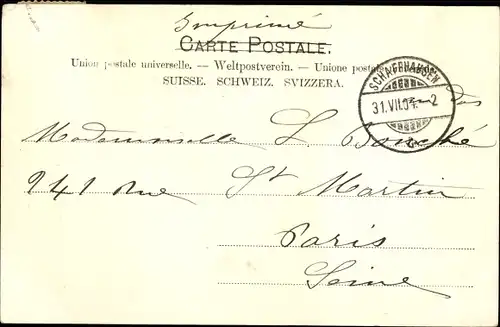 Imprimé
CARTE POSTALE.
Union postale universelle. — Weltpostverein. — Unione postale
SUISSE. SCHWEIZ. SVIZZERA.
SCHAFFHAUSEN
31.VII.04. 2
Mademoiselle L
241 Rue St Martin
Paris
Seine